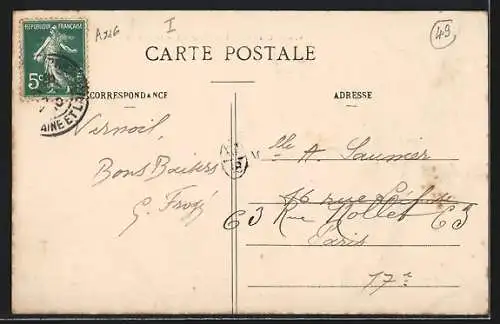 REPUBLIQUE FRANÇAISE
5c
AINE ET L
I
49
CARTE POSTALE
CORRESPONDANCE
ADRESSE
Vernoil,
Bons Baisers
Mlle A. Saumer
16 rue
63 Rue Nollet 63
Paris
17e